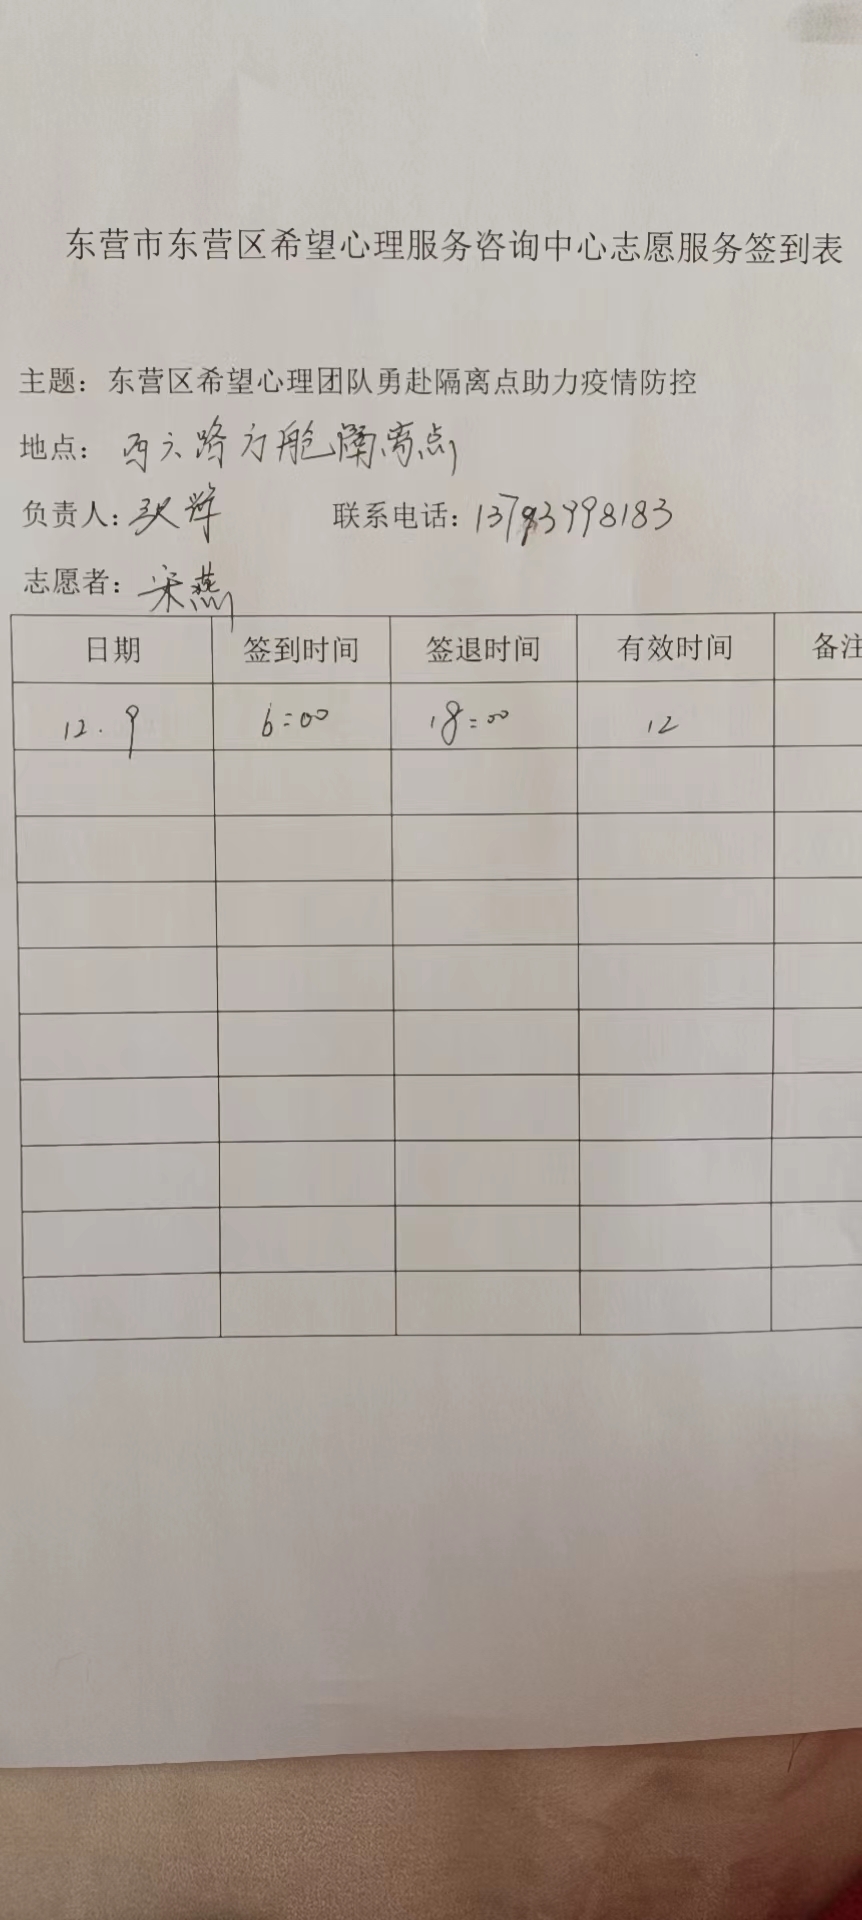 东营市东营区希望心理服务咨询中心志愿服务签到表
主题：东营区希望心理团队勇赴隔离点助力疫情防控
地点：西六路方舱隔离点
负责人： 联系电话：13793998183
志愿者：宋燕
日期 签到时间 签退时间 有效时间 备注
12.9 6:00 18:00 12